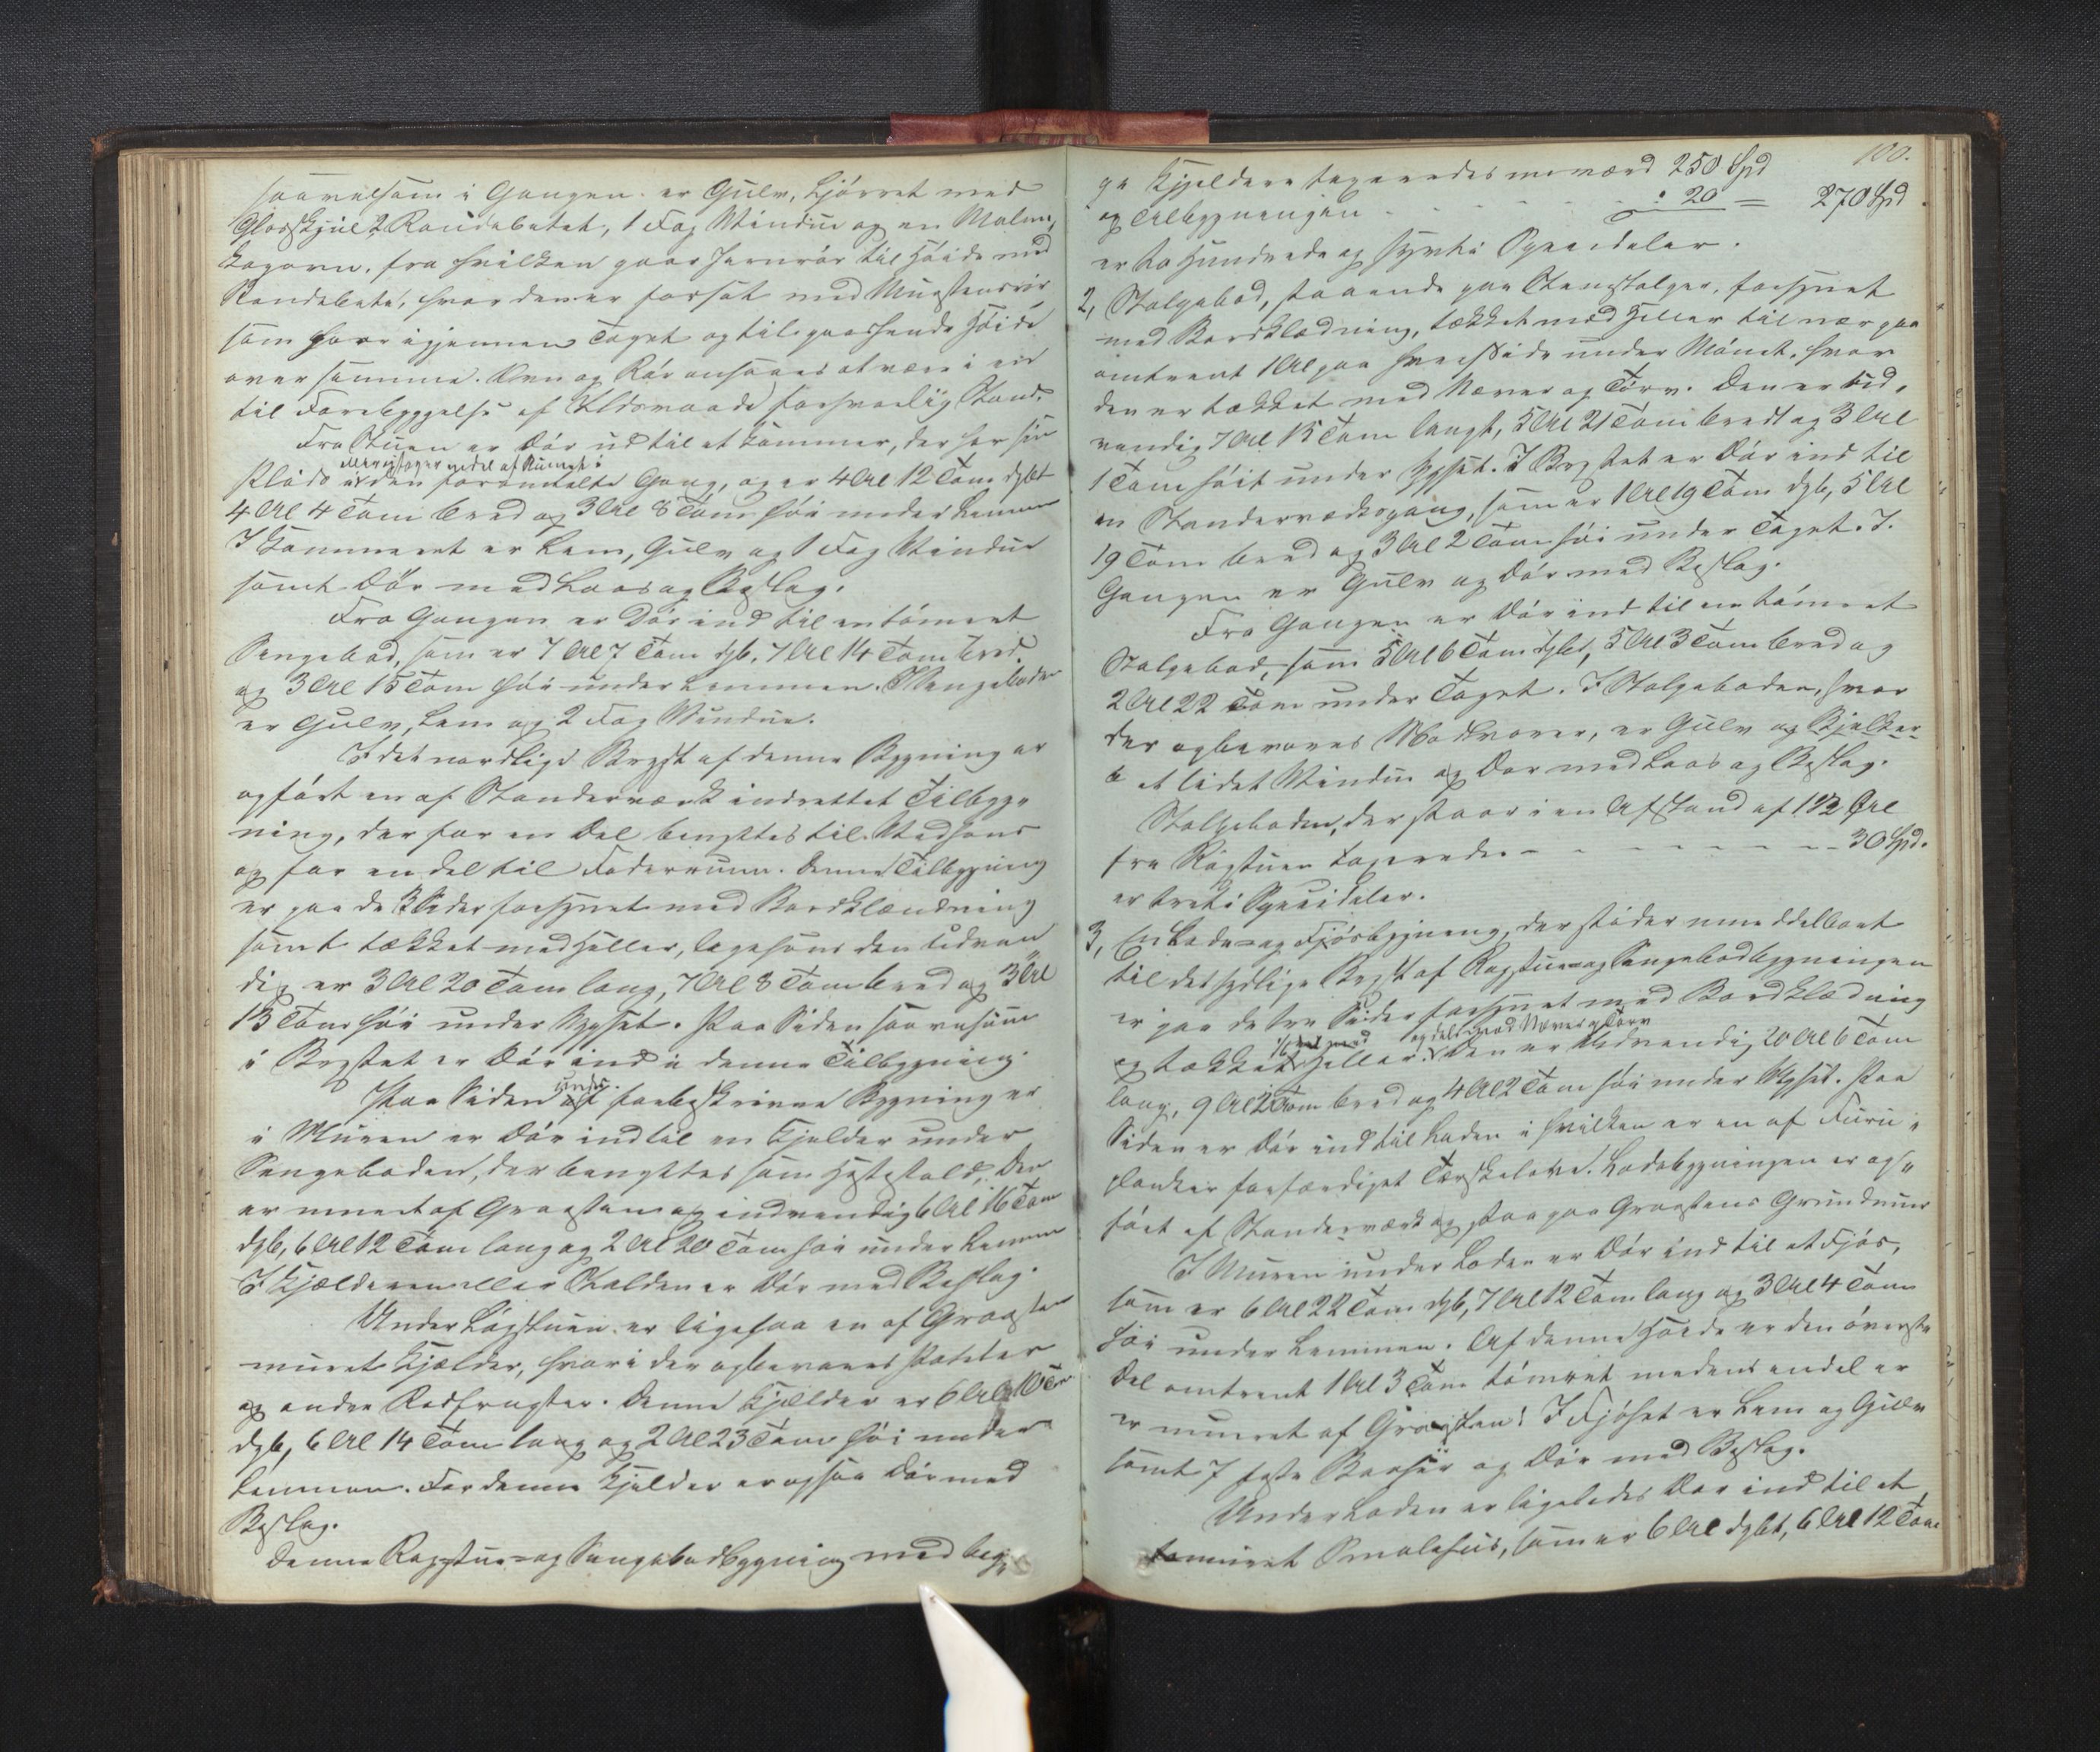 saavelsom i Gangen er Gulv, Ljørret med
Glasskjul 2 Raudabetet, 1 Fag Vindue og en Malm,
kogovn, fra hvilken gaar Jernrør til Høide med
Raudabete, hvor den er forsat med Muurstensrør
som gaar igjennem Taget og tilpassende Høide
over samme. Ovn og Rør ansaaes at være i en
til Forebyggelse af Ildsvaade forsvarlig Stand.
Fra Stuen er Dør ud til et Kammer, der har sin
Plads i den foromtalte Gang, og er 4 Al 12 Tom dybt
4 Al 4 Tom bred og 3 Al 8 Tom høi under Lemmen
I Kammeret er Lem, Gulv og 1 Fag Vindue
samt Dør med Laas og Beslag.
Fra Gangen er Dør ind til en tømret
Sengebod, som er 7 Al 7 Tom dyb, 7 Al 14 Tom bred
og 3 Al 15 Tom høi under Lemmen. I Sengeboden
er Gulv, Lem og 2 Fag Vindue.
I det nordlige Bryst af denne Bygning er
opført en af Standerværk indrettet Tilbyg„
ning, der for en Del benyttes til Vedhuus
og for en del til Foderrum. Denne Tilbygning
er paa de 3 Sider forsynet med Bordklædning
samt tækket med Heller, ligesom den udven„
dig er 3 Al 20 Tom lang, 7 Al 8 Tom bred og 3 Al
13 Tom høi under Rygset. Paa Siden saavelsom
i Brystet er Dør ind i denne Tilbygning.
Paa Siden under forbeskrevne Bygning er
i Muren er Dør ind til en Kjelder under
Sengeboden, der benyttes som Hestestald, Den
er muret af Graasten og indvendig 6 Al 16 Tom
dyb, 6 Al 12 Tom lang og 2 Al 20 Tom høi under Lemmen
I Kjælderen eller Stalden er Dør med Beslag.
Under Røgstuen er ligesaa en af Graasten
muret Kjælder, hvori der opbevares Poteter
og andre Rodfrugter. Denne Kjælder er 6 Al 10 Tom
dyb, 6 Al 14 Tom lang og 2 Al 23 Tom høi under
Lemmen. For denne Kjelder er ogsaa Dør med
Beslag.
Denne Røgstue- og Sengebodbygning med beg„
100.
ge Kjeldere taxeredes 250 Spd
og Tilbygningen - - - - : 20 = 270 Spd.
er to Hundrede og sytti Speciedaler.
2, Stolpebod, staaende paa Stenstolper, forsynet
med Bordklædning, tækket med Heller til nær paa
omtrent 1 Al paa hver Side under Mønet, hvor
den er tækket med Næver og Tørv. Den er ud„
vendig 7 Al 15 Tom langt, 5 Al 21 Tom bredt og 3 Al
1 Tom høit under Rygset. I Brystet er Dør ind til
en Standerværksgang, som er 1 Al 19 Tom dyb, 5 Al
19 Tom bred og 3 Al 2 Tom høi under Taget. I
Gangen er Gulv og Dør med Beslag.
Fra Gangen er Dør ind til en tømret
Stolpebod, som 5 Al 6 Tom dybt, 5 Al 3 Tom bred og
2 Al 22 Tom under Taget. I Stolpeboden, hvor
der opbevares Madvarer, er Gulv og Bjelker
et lidet Vindue og Dør med Laas og Beslag.
Stolpeboden, der staar i en Afstand af 12 Al
fra Røgstuen taxeredes - - - - - 30 Spd.
er tretti Speciedaler.
3, En Lade- og Fjøsbygning, der støder umiddelbart
til det sydlige Bryst af Røgstue- og Sengebodbygningen
er paa de tre Sider forsynet med Bordklædning
og dels med Næver og Tørv
og tækket Heller. Den er udvendig 20 Al 6 Tom
lang, 9 Al 2 Tom bred og 4 Al 2 Tom høi under Rygset. Paa
Siden er Dør ind til Laden i hvilken er en af Furu„
planker forfærdiget Tærskelove. Ladebygningen er op„
ført af Standerværk og staar paa Graastens Grundmur
I Muren under Laden er Dør ind til et Fjøs,
som er 6 Al 22 Tom dyb, 7 Al 12 Tom lang og 3 Al 4 Tom
høi under Lemmen. Af denne Høide er den øverste
Del omtrent 1 Al 3 Tom tømret medens en del er
er muret af Graasten. I Fjøset er Lem og Gulv
samt 7 faste Baaser og Dør med Beslag.
Under Laden er ligeledes Dør ind til et
muret Smalehus, som er 6 Al dybt, 6 Al 12 Tom